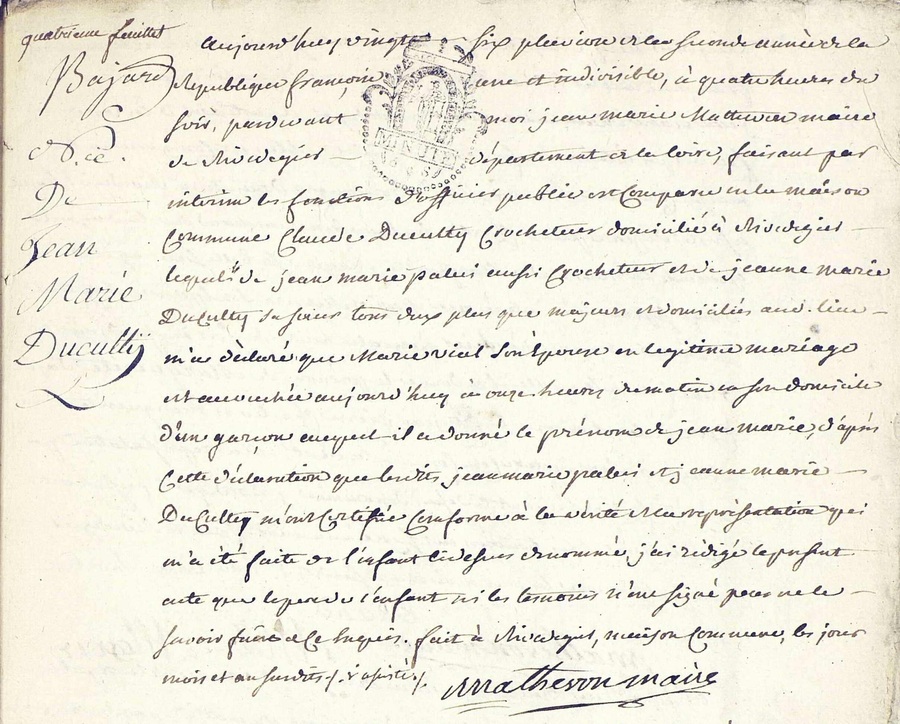 quatrieme feuillet
Bajard
N.ce
De
Jean
Marie
Ducultÿ
aujourd huy vingt six pluviose de la seconde année de la
Republique françoise une et indivisible, à quatre heures du
soir, pardevant moi jean marie Mathevon maire
de Rivedegier département de la loire, faisant par
interim les fonctions d'officier public est Comparu en la maison
Commune Claude Ducultÿ Crocheteur domicilié à Rivedegier
lequel de jean marie palais aussi Crocheteur et de jeanne marie
Ducultÿ sa soeur tous deux plus que majeurs et domiciliés aud. lieu
m'a déclaré que Marie vial son Epouse en legitime mariage
est accouchée aujourd'huy à onze heures du matin en son domicile
d'un garçon auquel il a donné le prénom de jean marie, d'après
Cette déclaration que lesdits jean marie palais et jeanne marie
Ducultÿ m'ont Certifiée Conforme à la vérité et la représentation qui
m'a été faite de l'enfant cidessus denommé, j'ai rédigé le présent
acte que le pere de l'enfant ni les temoins n'ont signé pour ne le
savoir faire de Ce Enquis. fait à Rivedegier, maison Commune, les jour
mois et an susdits
Mathevon maire